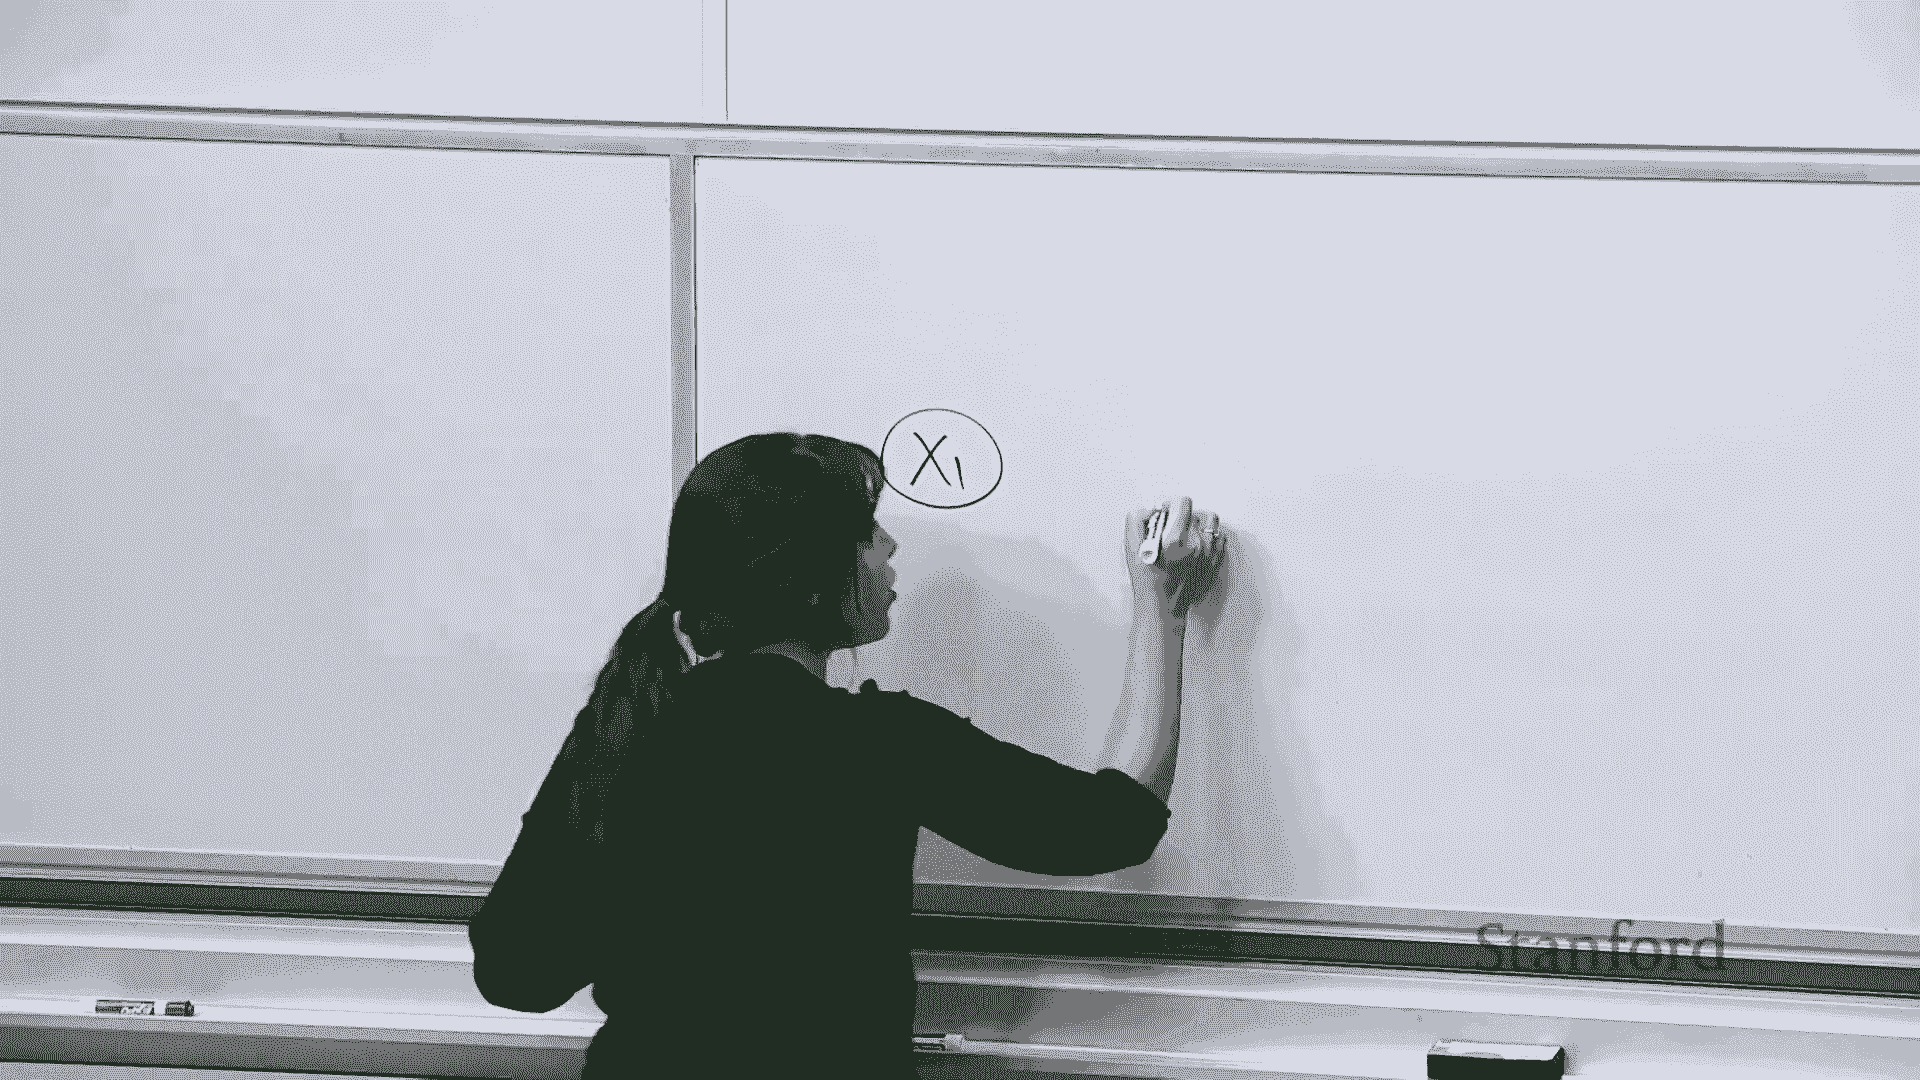 X₁
Stanford